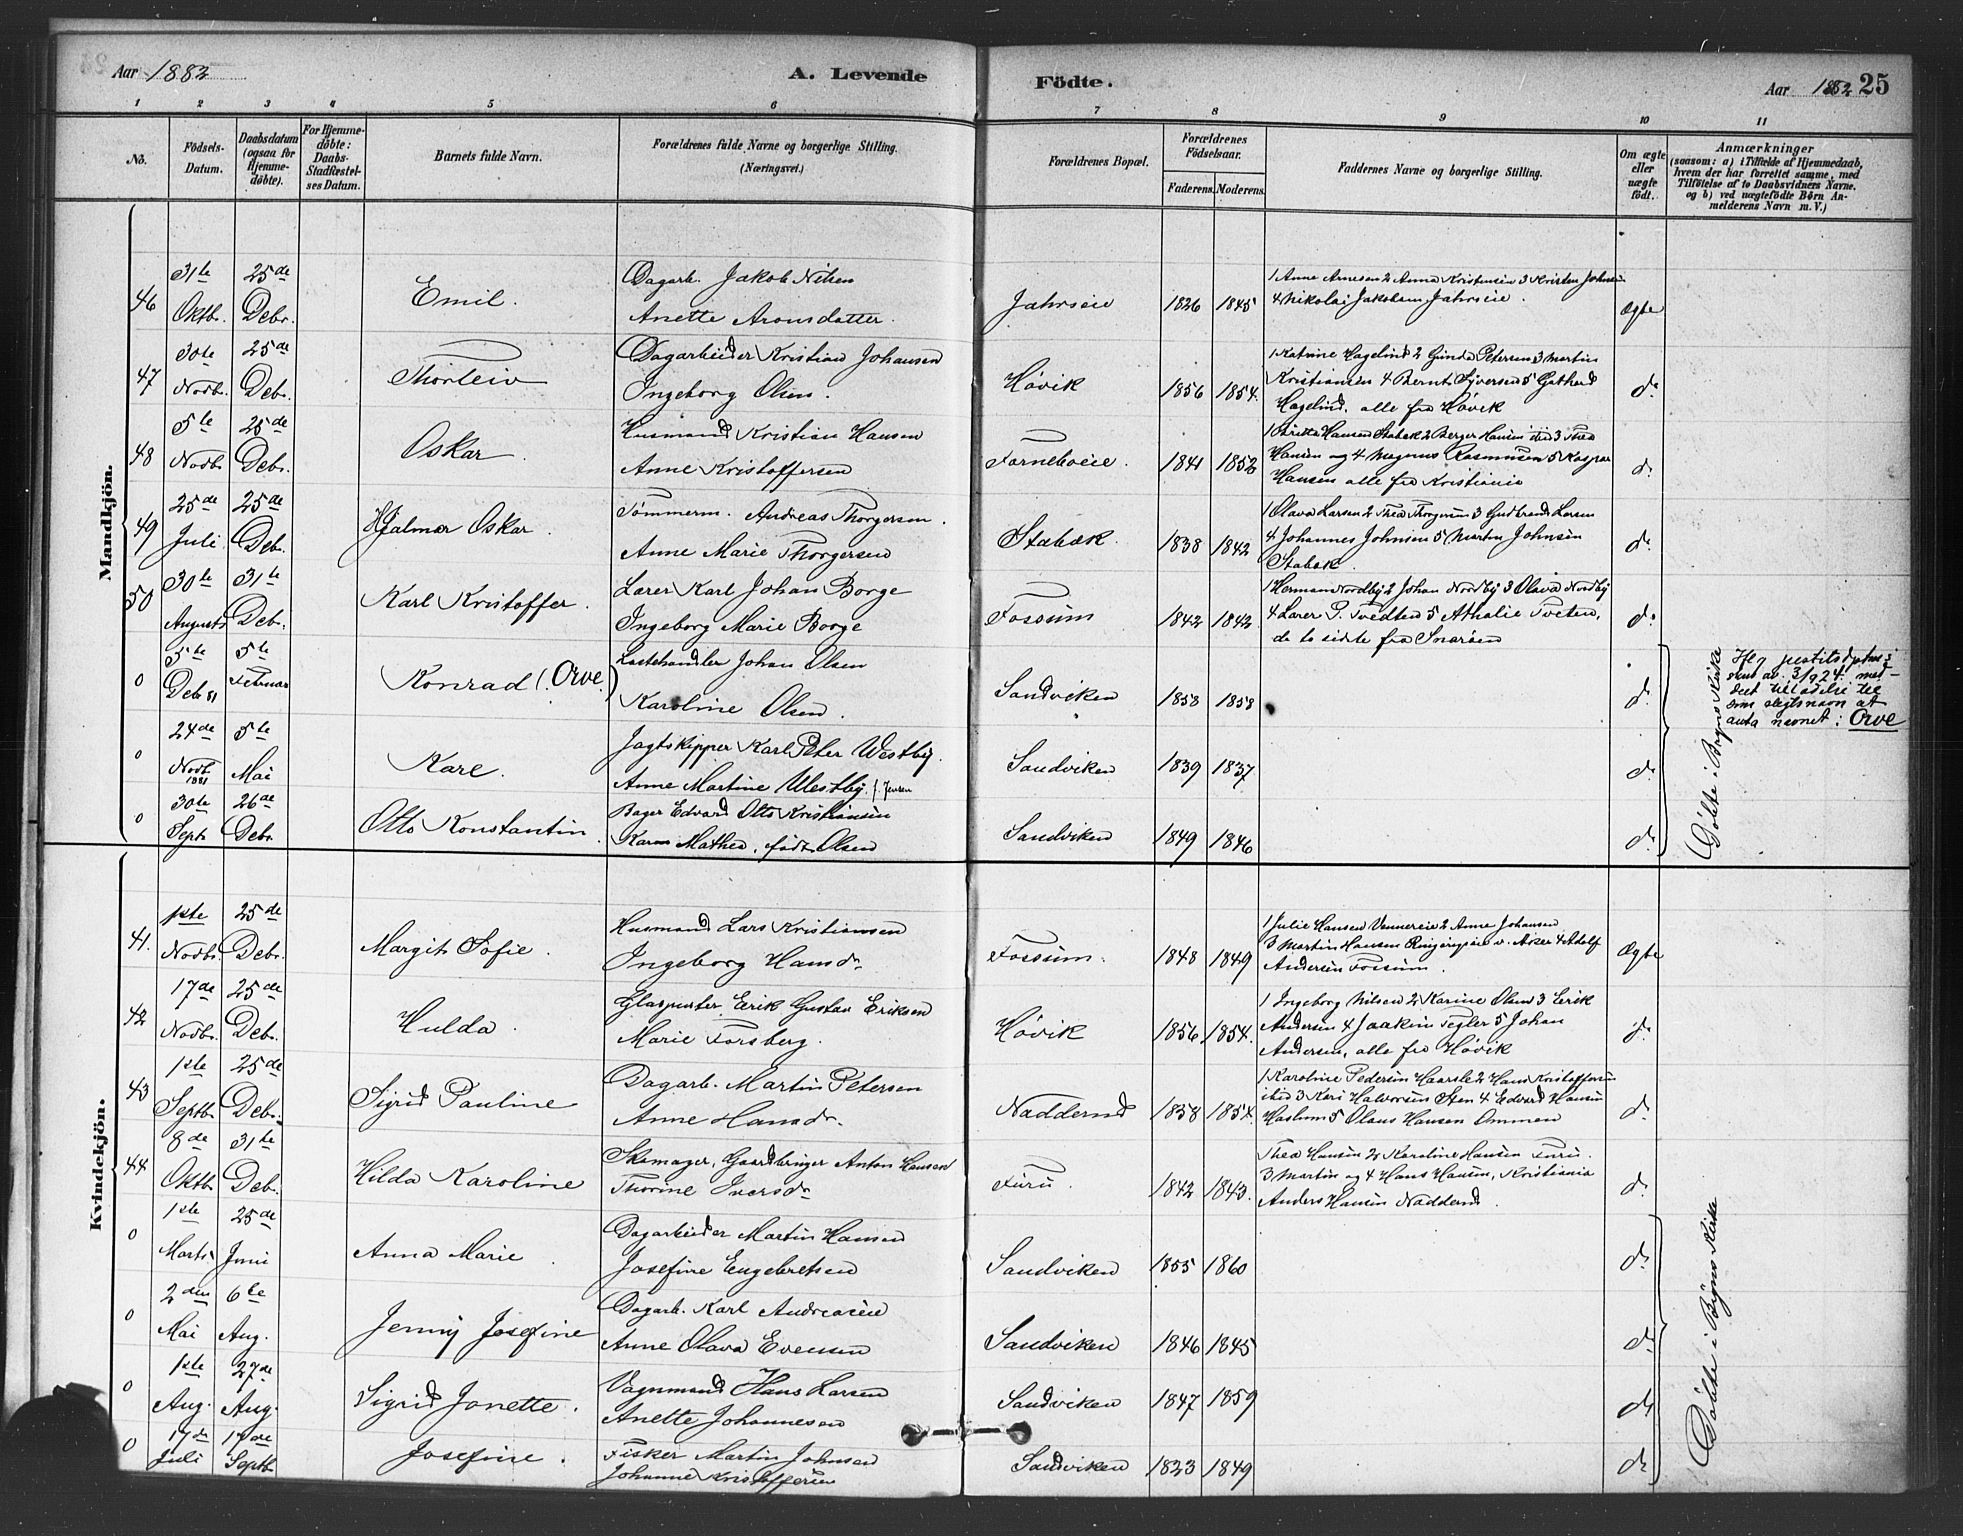 Aar 1882
A. Levende
Födte.
Aar 1882 25
1 2 3 4 5 6 7 8 9 10 11
No.
Födsels-
Datum.
Daabsdatum
(ogsaa for
Hjemme-
döbte).
For Hjemme-
döbte:
Daabs-
Stadfæstel-
ses Datum.
Barnets fulde Navn.
Forældrenes fulde Navne og borgerlige Stilling.
(Næringsvei.)
Forældrenes Bopæl.
Forældrenes
Födselsaar.
Faderens. Moderens.
Faddernes Navne og borgerlige Stilling.
Om ægte
eller
uægte
födt.
Anmærkninger
(saasom: a) i Tilfælde af Hjemmedaab,
hvem der har forrettet samme, med
Tilföielse af to Daabsvidners Navne.
og b) ved uægtefödte Børn An-
melderens Navn m. V.)
Mandkjön.
46 31te Oktbr. 25de Debr. Emil.
Dagarb. Jakob Nilsen
Anette Aronsdatter.
Jahrseie 1826 1845
1 Anne Arnesen 2 Anna Kristensen 3 Kristen Johnsen
4 Nikolaj Jakobsen Jahrseie.
Ægte
47 30te Novbr. 25de Debr. Thorleiv
Dagarbeider Kristian Johansen
Ingeborg Olsen.
Høvik 1856 1854.
1 Katrine Hagelind 2 Gunda Petersen 3 Martin
Kristiansen 4 Bernt Syversen 5 Gothard
Hagelind, alle fra Høvik
do
48 5te Novbr. 25de Debr. Oskar.
Husmand Kristian Hansen
Anne Kristoffersen
Forneboeie. 1841 1852
Hansen og 4 Magnus Rasmussen 5 Kaspar
Hansen alle fra Kristiania
do
49 25de Juli 25de Deb. Hjalmar Oskar.
Tömmerm. Andreas Thorgersen.
Anne Marie Thorgersen
Stabæk. 1838 1842
1 Olava Larsen 2 Thea Thorgersen 3 Gudbrand Larsen
4 Johannes Johnsen 5 Martin Johnsen
Stabæk.
do
50 30te August 31te Debr. Karl Kristoffer.
Lærer Karl Johan Borge
Ingeborg Marie Borge
Fossum 1842 1842.
1 Herman Nordby 2 Johan Nordby 3 Olava Nordby
4 Lærer P. Tvedten 5 Athalie Tveten,
de to sidste fra Snarøen
do
0 5te Debr 81 5te Februar Konrad (Orve.)
Lastehandler Johan Olsen
Karoline Olsen.
Sandviken 1858 1858
do
Ifg justitsdptm.s
skriv av 3/9 24 med-
delt tilladelse til
som slegtsnavn at
anta navnet: Orve
0 24de Novbr. 1881 5te Mai Kare.
Jagtskipper Karl Peter Westby.
Anne Martine Westby. f. Jensen
Sandviken 1839 1837
do
0 30te Septr 26de Debr. Otto Konstantin.
Bager Edvard Otto Kristiansen
Karen Mathea, født Olsen
Sandviken 1849 1846
do
Døbte i Bryns Kirke
Kvindekjön.
41. 1ste Novbr. 25de Debr. Margit Sofie.
Husmand Lars Kristiansen
Ingeborg Hansdr.
Fossum. 1848 1849
1 Julie Hansen 2 Anne Johansen
3 Martin Hansen v. Aker 4 Adolf
Andersen Fossum.
Ægte
42 17de Novbr. 25de Debr. Hulda.
Glaspuster Erik Gustav Eriksen
Marie Forsberg.
Høvik 1856 1854.
1 Ingeborg Nilsen 2 Karine Olsen 3 Erik
Andersen 4 Joakim Tegler 5 Johan
Andersen, alle fra Høvik
do
43 1ste Septbr. 25de Debr. Sigrid Pauline
Dagarb. Martin Petersen
Anne Hansdr.
Nadderud 1858 1854.
1 Karoline Pedersen Haarsle 2 Hans Kristoffersen
isted 3 Kari Halvorsen Sten 4 Edvard Hansen
Haslum 5 Olaus Hansen Ommen
do
44 8de Oktbr. 31te Debr. Hilda Karoline
Skomager, Gaardbruger Anton Hansen
Thorine Iversdr
Furu. 1842 1843.
Thea Hansen 2 Karoline Hansen Furu.
3 Martin og 4 Hans Hansen, Kristiania
Anders Hansen Nadderud.
do
0 1ste Marts 25de Juni Anna Marie.
Dagarbeider Martin Hansen
Josefine Engebretsen
Sandviken 1855 1860
do
0 2den Mai 6te Aug. Jenny Josefine
Dagarb. Karl Andreasen
Anne Olava Evensen
Sandviken 1846 1845
do
0 1ste Aug. 27de Aug. Sigrid Jonette.
Vognmand Hans Larsen
Anette Johannesen
Sandviken 1847 1859
do
0 17de Juli 17de Septbr Josefine.
Fisker Martin Johnsen
Johanne Kristoffersen
Sandviken 1823 1849
do
Døbte i Bryns Kirke